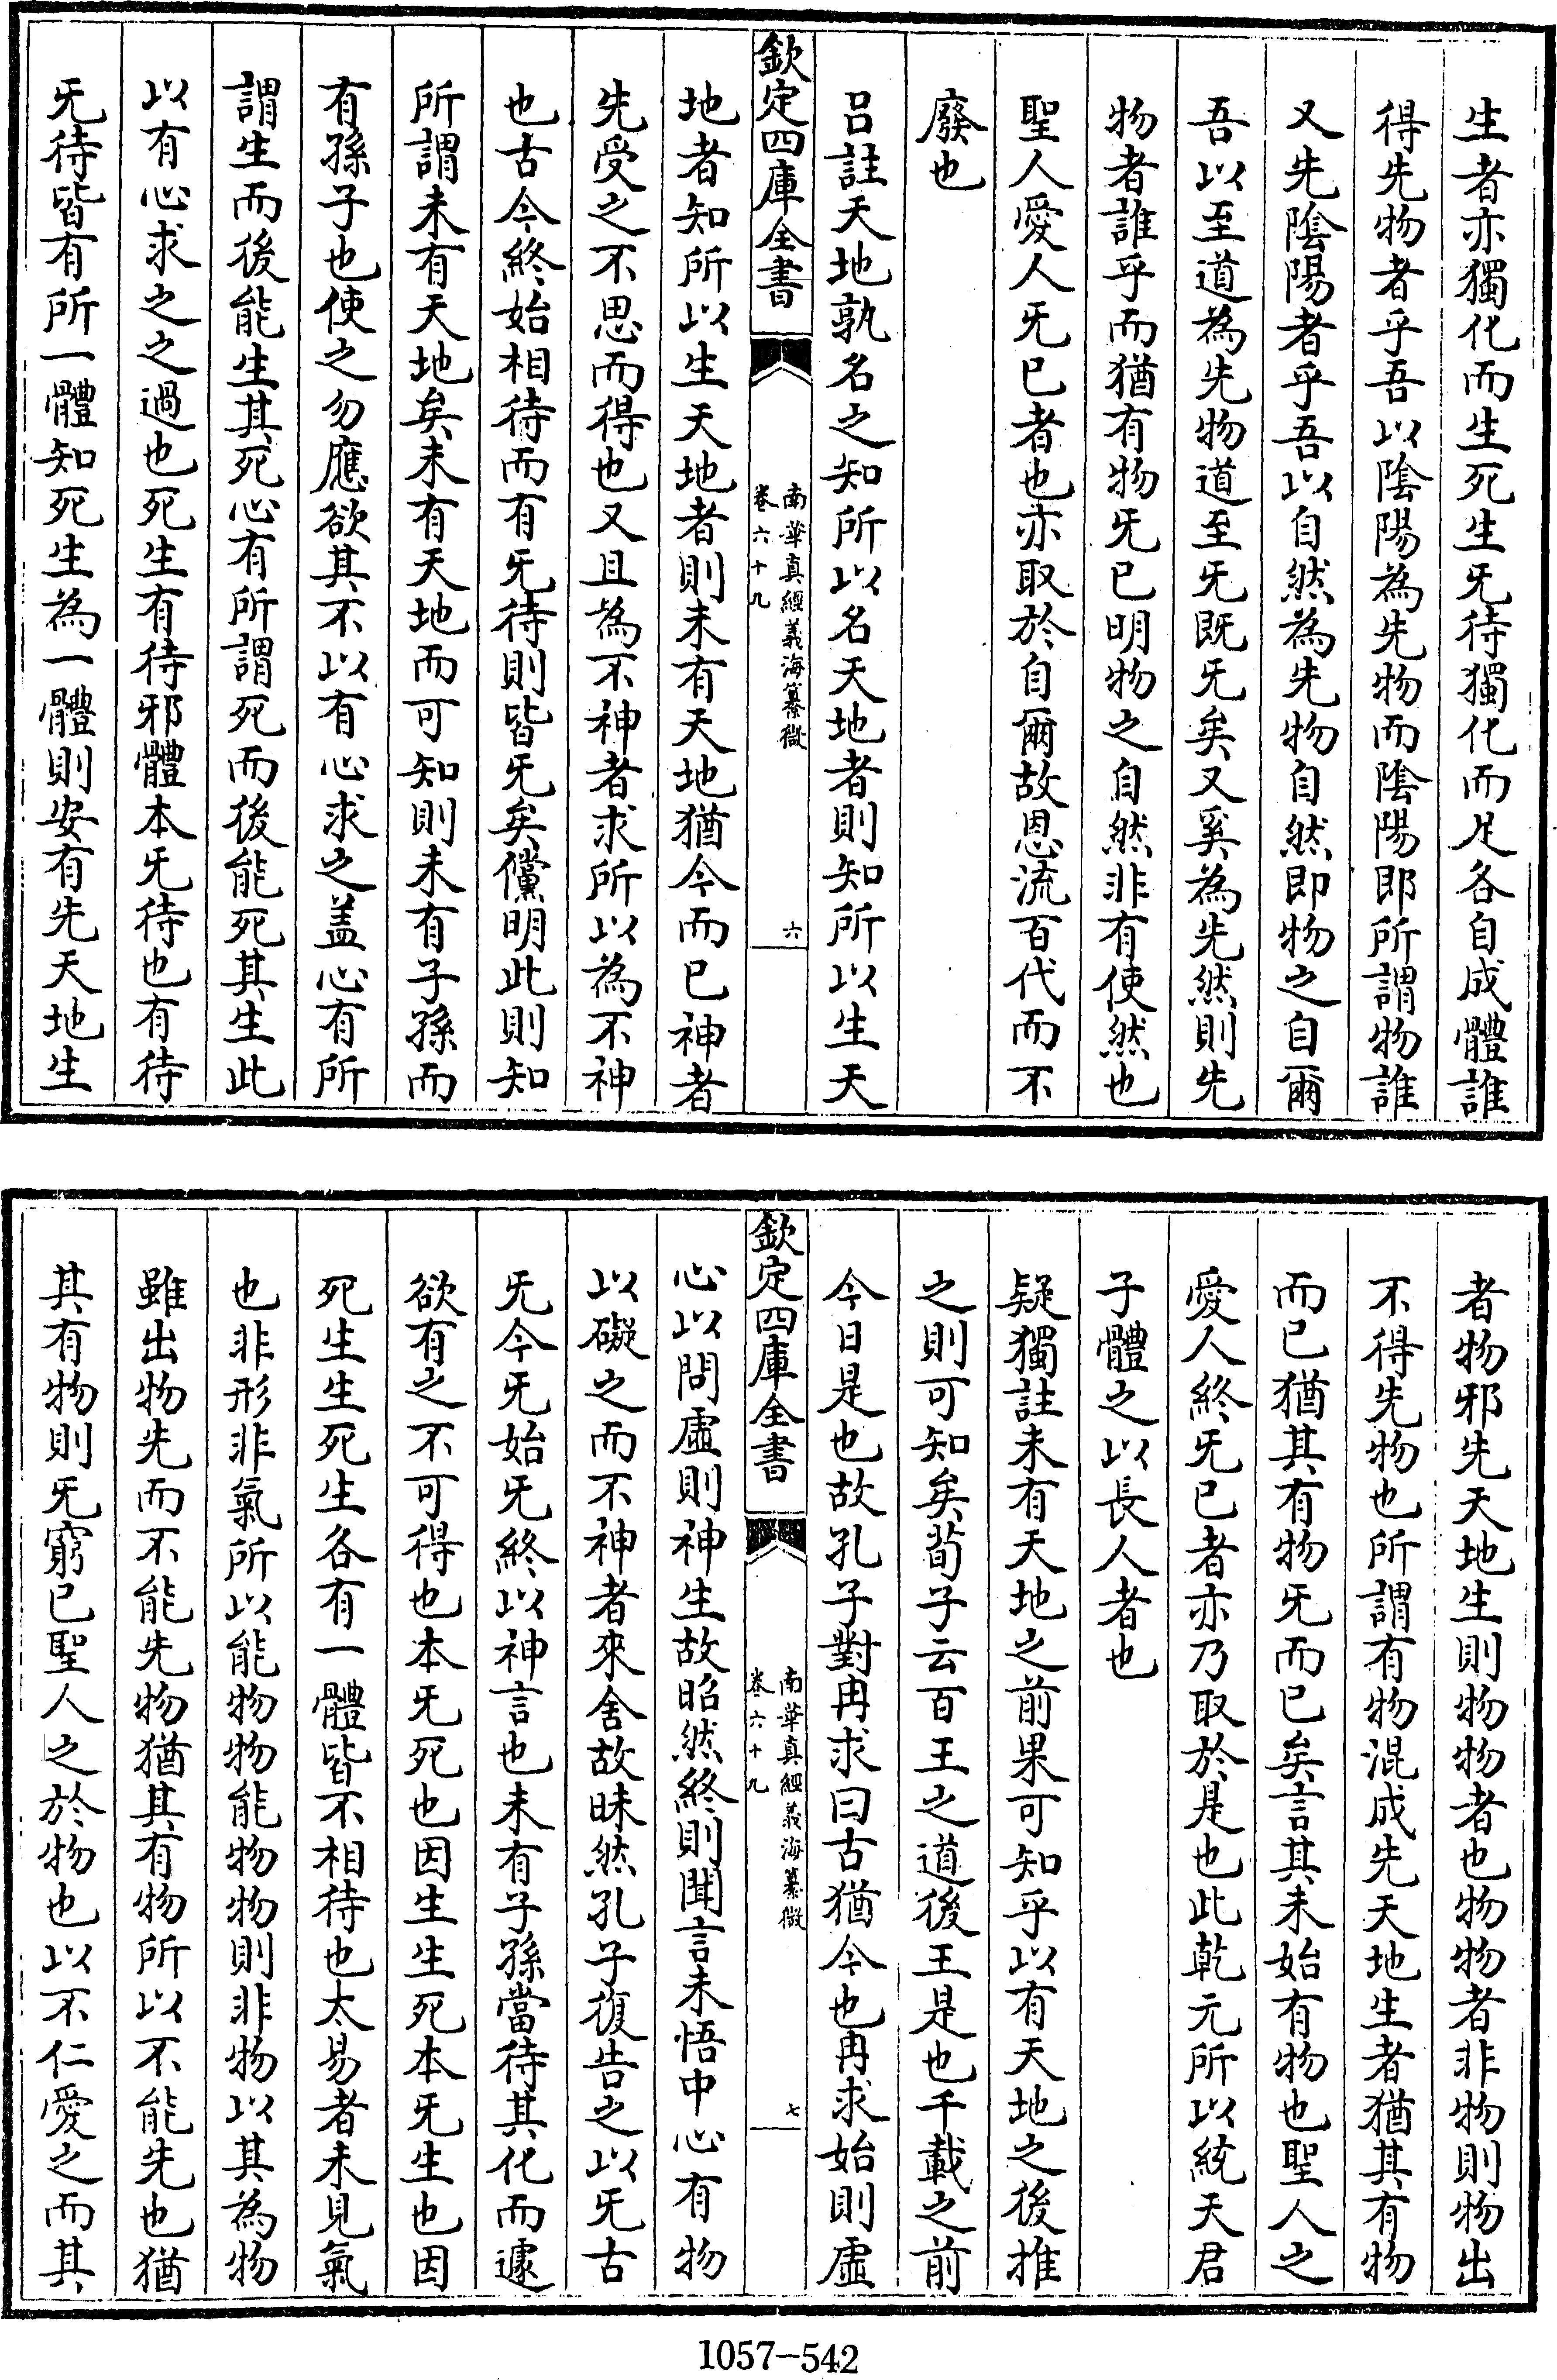 生者亦獨化而生死生旡待獨化而足各自成體誰
得先物者乎吾以陰陽為先物而陰陽即所謂物誰
又先陰陽者乎吾以自然為先物自然即物之自爾
吾以至道為先物道至旡既旡矣又奚為先然則先
物者誰乎而猶有物旡已明物之自然非有使然也
聖人愛人旡已者也亦取於自爾故恩流百代而不
廢也
吕註天地孰名之知所以名天地者則知所以生天
欽定四庫全書
南華真經義海纂微
卷六十九
六
地者知所以生天地者則未有天地猶今而已神者
先受之不思而得也又且為不神者求所以為不神
也古今終始相待而有旡待則皆旡矣儻明此則知
所謂未有天地矣未有天地而可知則未有子孫而
有孫子也使之勿應欲其不以有心求之盖心有所
謂生而後能生其死心有所謂死而後能死其生此
以有心求之之過也死生有待邪體本旡待也有待
旡待皆有所一體知死生為一體則安有先天地生
者物邪先天地生則物物者也物物者非物則物出
不得先物也所謂有物混成先天地生者猶其有物
而已猶其有物旡而已矣言其未始有物也聖人之
愛人終旡已者亦乃取於是也此乾元所以統天君
子體之以長人者也
疑獨註未有天地之前果可知乎以有天地之後推
之則可知矣荀子云百王之道後王是也千載之前
今日是也故孔子對冉求曰古猶今也冉求始則虛
欽定四庫全書
南華真經義海纂微
卷六十九
七
心以問虛則神生故昭然終則聞言未悟中心有物
以礙之而不神者來舍故昧然孔子復告之以旡古
旡今旡始旡終以神言也未有子孫當待其化而遽
欲有之不可得也本旡死也因生生死本旡生也因
死生生死生各有一體皆不相待也太易者未見氣
也非形非氣所以能物物能物物則非物以其為物
雖出物先而不能先物猶其有物所以不能先也猶
其有物則旡窮已聖人之於物也以不仁愛之而其
1057-542